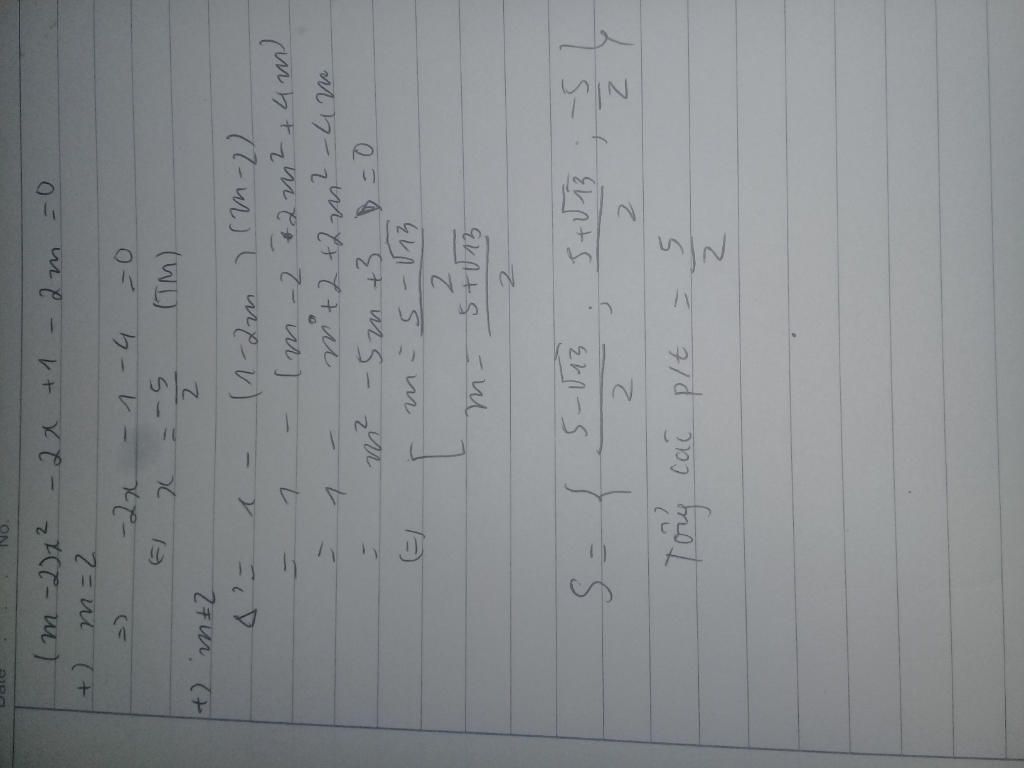 Date No.
(m-2)x² - 2x + 1 - 2m = 0
+) m=2
=> -2x - 1 - 4 = 0
(=) x = -5/2 (TM)
+) m≠2
Δ' = 1 - (1-2m)(m-2)
= 1 - (m-2-2m²+4m)
= 1 - m+2+2m²-4m
= m² - 5m + 3 = 0
(=) [ m = (5-√13)/2
m = (5+√13)/2
S = { (5-√13)/2 ; (5+√13)/2 ; -5/2 }
Tổng các p/t = 5/2